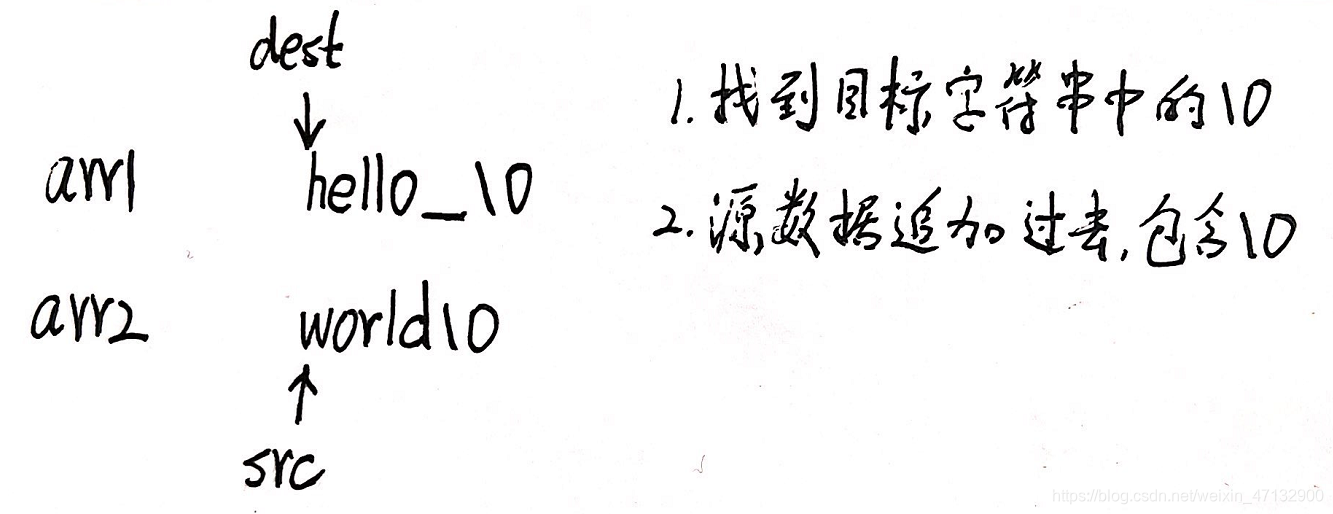 dest
arr1 hello_\0
arr2 world\0
src
1.找到目标字符串中的\0
2.源数据追加过去,包含\0
https://blog.csdn.net/weixin_47132900